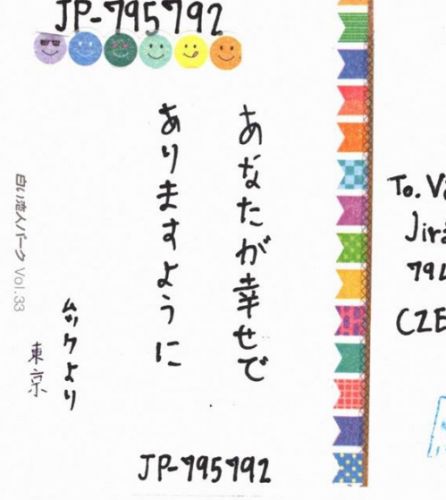 JP-795792
あなたが幸せで
ありますように
ムックより
東京
白い恋人パーク Vol.33
JP-795792
To. Vá
Jirá
794
CZE